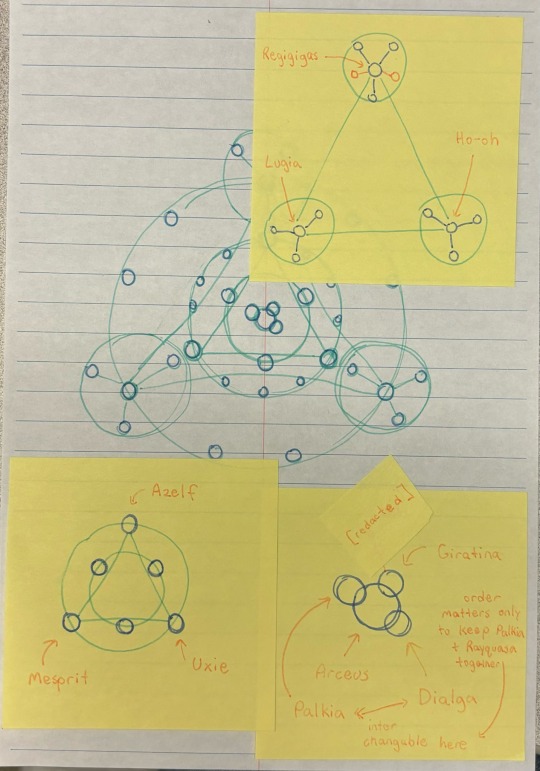 Regigigas
Ho-oh
Lugia
Azelf
Mesprit
Uxie
[redacted]
Giratina
order
matters only
to keep Palkia
+ Rayquasa
togainer
Arceus
Dialga
Palkia
inter
changuble here